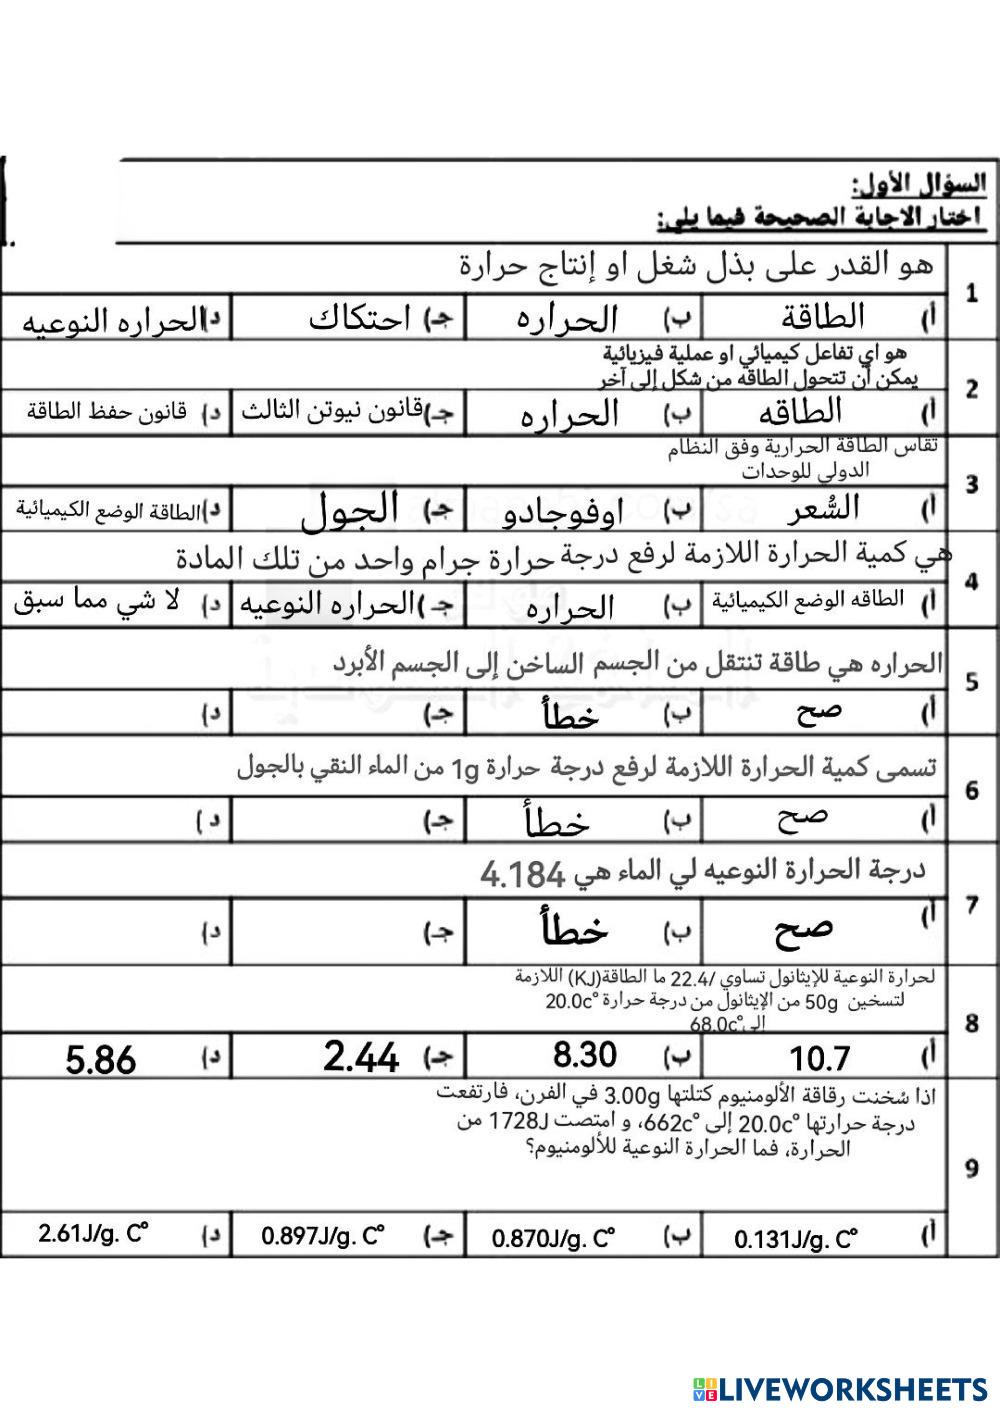 السؤال الأول:
اختار الاجابة الصحيحة فيما يلي:
1
هو القدر على بذل شغل او إنتاج حرارة
أ) الطاقة ب) الحراره جـ) احتكاك د) الحراره النوعيه
2
هو اي تفاعل كيميائي او عملية فيزيائية
يمكن أن تتحول الطاقه من شكل إلى آخر
أ) الطاقه ب) الحراره جـ) قانون نيوتن الثالث د) قانون حفظ الطاقة
3
تقاس الطاقة الحرارية وفق النظام
الدولي للوحدات
أ) السُّعر ب) اوفوجادو جـ) الجول د) الطاقة الوضع الكيميائية
4
هي كمية الحرارة اللازمة لرفع درجة حرارة جرام واحد من تلك المادة
أ) الطاقه الوضع الكيميائية ب) الحراره جـ) الحراره النوعيه د) لا شي مما سبق
5
الحراره هي طاقة تنتقل من الجسم الساخن إلى الجسم الأبرد
أ) صح ب) خطأ جـ) د)
6
تسمى كمية الحرارة اللازمة لرفع درجة حرارة 1g من الماء النقي بالجول
أ) صح ب) خطأ جـ) د)
7
درجة الحرارة النوعيه لي الماء هي 4.184
أ) صح ب) خطأ جـ) د)
8
لحرارة النوعية للإيثانول تساوي /22.4 ما الطاقة(KJ) اللازمة
لتسخين 50g من الإيثانول من درجة حرارة 20.0c°
إلى 68.0c°
أ) 10.7 ب) 8.30 جـ) 2.44 د) 5.86
9
اذا سُخنت رقاقة الألومنيوم كتلتها 3.00g في الفرن، فارتفعت
درجة حرارتها 20.0c° إلى 662c°، و امتصت 1728J من
الحرارة، فما الحرارة النوعية للألومنيوم؟
أ) 0.131J/g. C° ب) 0.870J/g. C° جـ) 0.897J/g. C° د) 2.61J/g. C°
LIVEWORKSHEETS